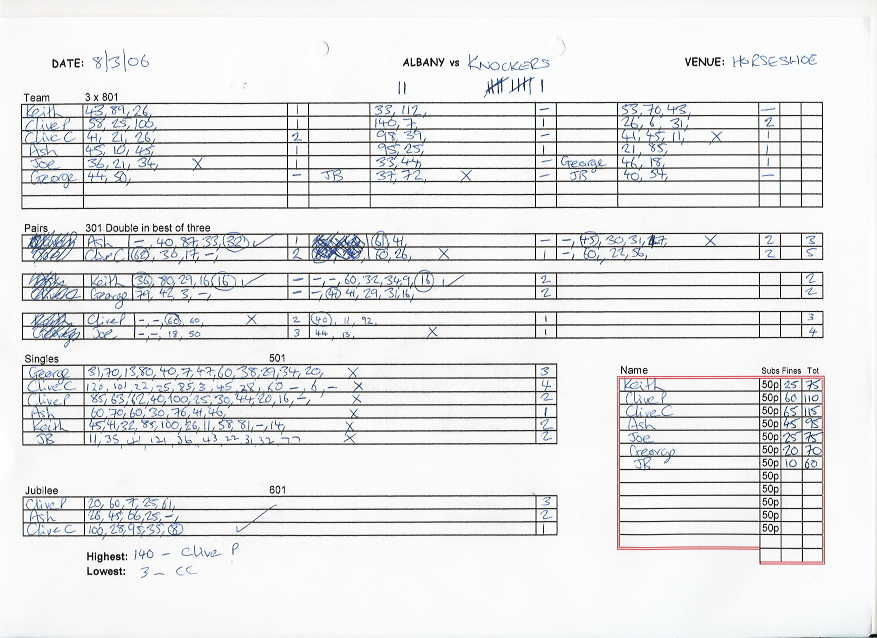 DATE: 8/3/06 ALBANY vs KNOCKERS VENUE: HORSESHOE
Team 3 x 801
Keith 43, 89, 26, 1 33, 112, - 53, 70, 43, -
Clive P 58, 25, 100, 140, 7, 1 26, 6, 31, 2
Clive C 41, 21, 26, 2 98, 39, - 41, 45, 11, X 1
Ash 45, 10, 45, 1 95, 25, 1 21, 85, 1
Joe 36, 21, 34, X 1 33, 44, - George 46, 18, 1
George 44, 50, - JB 37, 72, X - JB 40, 54, -
Pairs 301 Double in best of three
Ash -, 40, 87, 33, 32 ✓ 1 61, 41, - -, 45, 30, 31, X 2 3
Clive C 60, 30, 17, -, 2 60, 26, X 1 -, 60, 22, 36, 2 5
Keith 36, 80, 29, 16, 16 ✓ - -, -, 60, 32, 34, 9, 16 ✓ 2 2
George 79, 42, 3, -, - -, 40, 41, 29, 31, 16, 2 2
Clive P -, -, 60, 60, X 2 40, 11, 92, 1 3
Joe -, -, 18, 50 3 44, 13, X 1 4
Singles 501
George 31, 70, 13, 80, 40, 7, 47, 60, 38, 29, 34, 20, X 3
Clive C 120, 101, 22, 25, 85, 3, 45, 28, 60, -, 6, - X 4
Clive P 85, 63, 62, 40, 100, 25, 30, 44, 20, 16, -, X 2
Ash 60, 70, 60, 30, 76, 41, 46, X 1
Keith 45, 41, 32, 85, 100, 26, 11, 58, 81, -, 14, X 2
JB 11, 35, 41, 121, 36, 43, 22, 31, 32, 77 X 2
Name Subs Fines Tot
Keith 50p 25 75
Clive P 50p 60 110
Clive C 50p 65 115
Ash 50p 45 95
Joe 50p 25 75
George 50p 20 70
JB 50p 10 60
50p
50p
50p
50p
50p
Jubilee 601
Clive P 20, 60, 7, 25, 61, 3
Ash 26, 45, 66, 25, -, 2
Clive C 100, 28, 95, 35, 8 ✓ 1
Highest: 140 - Clive P
Lowest: 3 - CC